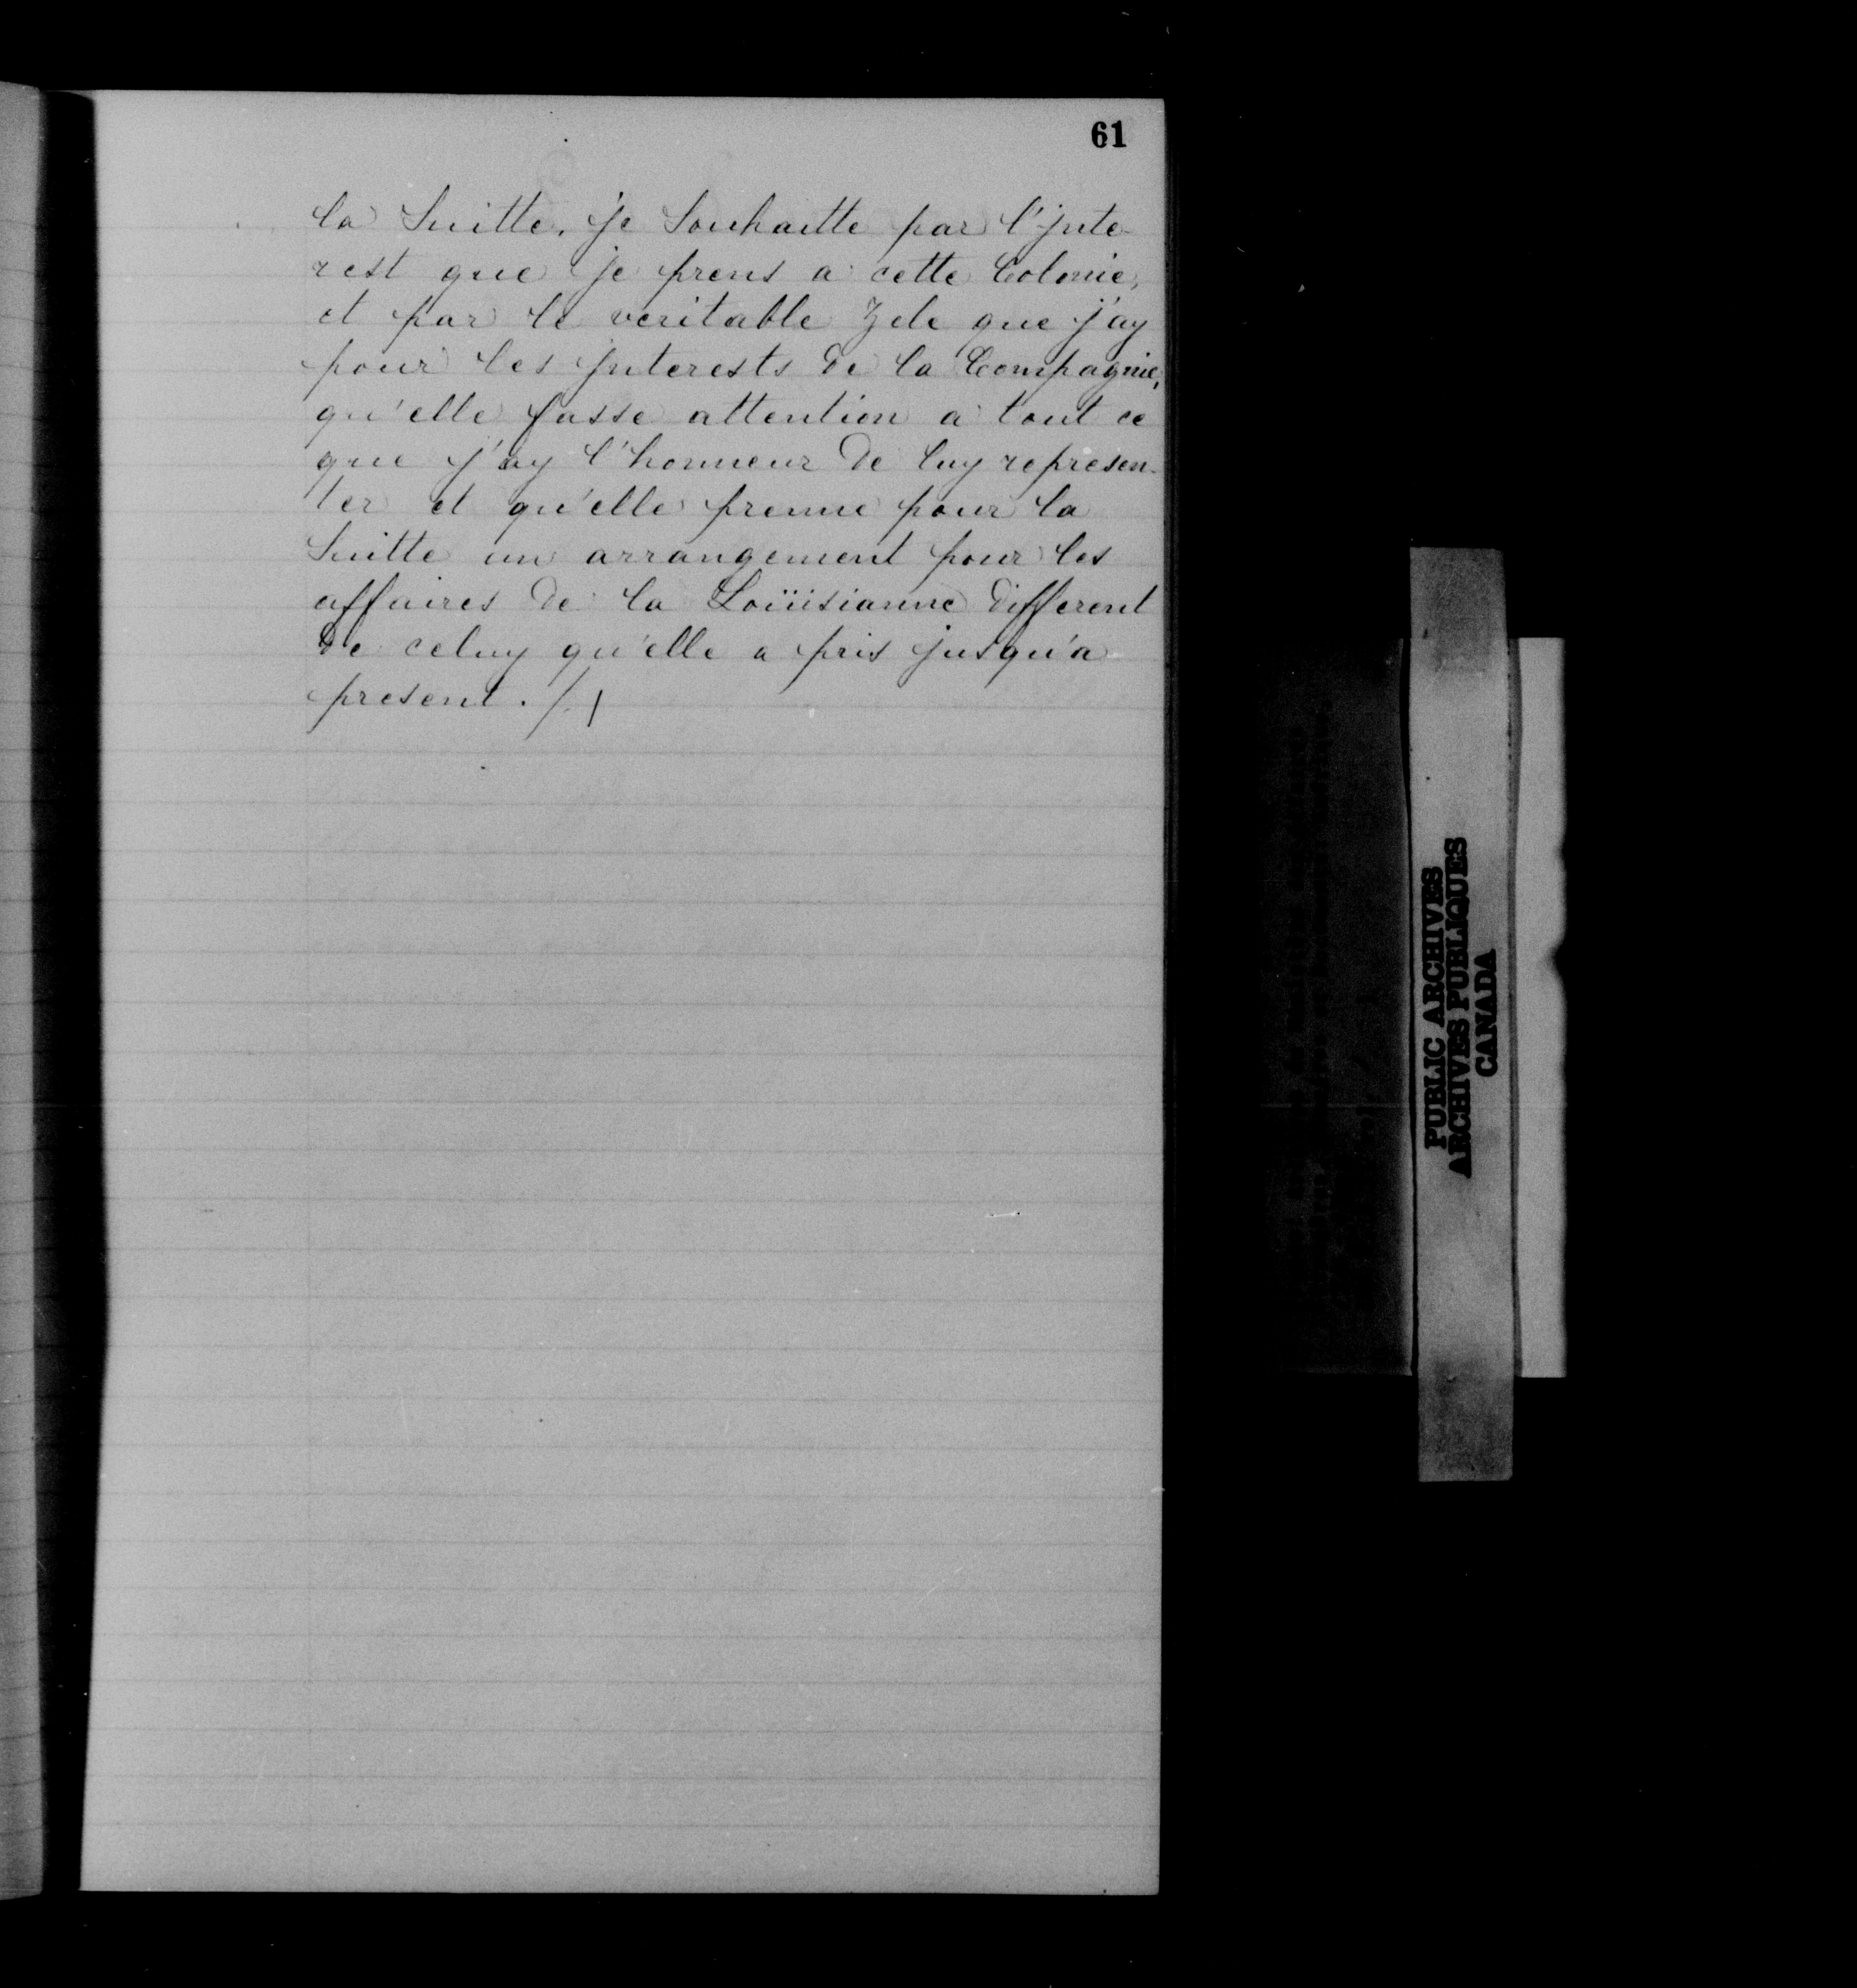 61
la Suitte. je Souhaitte par l'jnte-
rest que je prens a cette Colonie,
et par le veritable Zele que j'ay
pour les jnterests de la Compagnie,
qu'elle fasse attention a tout ce
que j'ay l'honneur de luy represen-
ter et qu'elle prenne pour la
Suitte un arrangement pour les
affaires de la Loüisianne different
de celuy qu'elle a pris jusqu'a
present ./.
PUBLIC ARCHIVES
ARCHIVES PUBLIQUES
CANADA